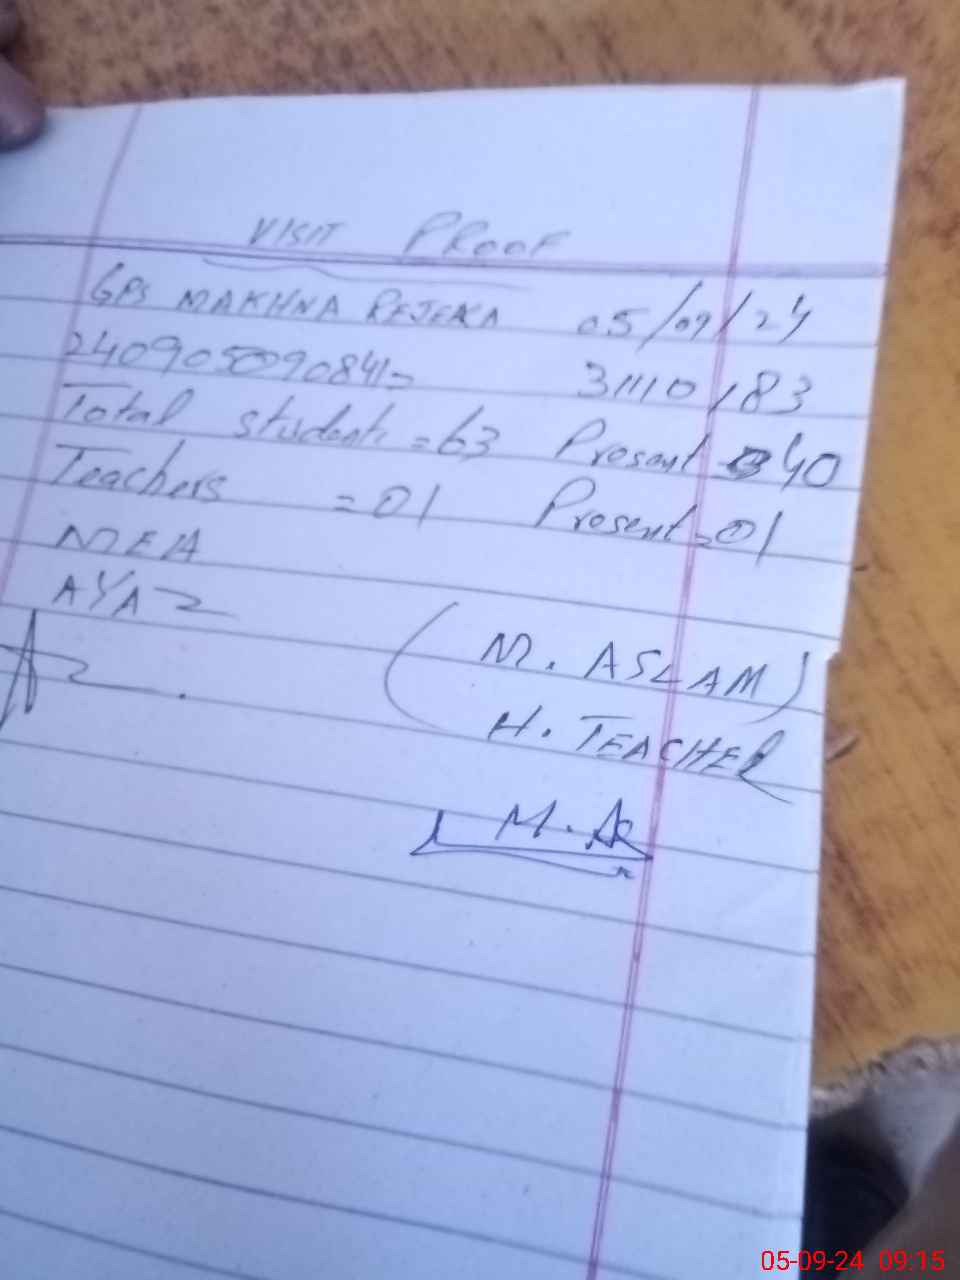 VISIT PROOF
GPS MAKHNA REJEKA 05/09/24
31110183
Total students = 63 Present = 40
Teachers = 01 Present = 01
MEA
AYAZ
(M. ASLAM)
H. TEACHER
M. A
05-09-24 09:15